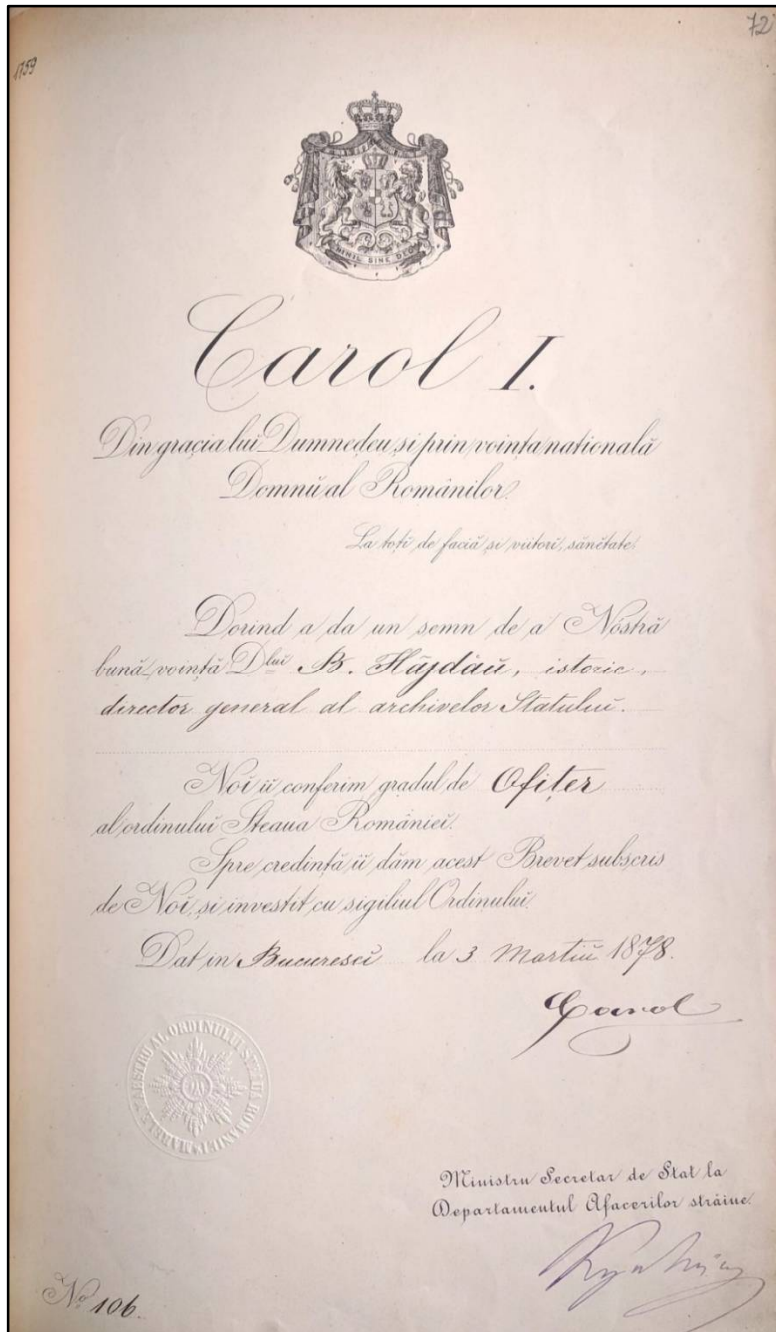 72
1759
NIHIL SINE DEO
Carol I.
Din graçia lui Dumnedeu si prin voința natională
Domnŭ al Românilor.
La toți de faciă si viitorĭ, sănĕtate.
Dorind a da un semn de a Nóstră
bună voință Dlui B. Hâjdăŭ, istoric,
director general al archivelor Statuluĭ.
Noĭ iĭ conferim gradul de Ofițer
al ordinuluĭ Steaua Românieĭ.
Spre credință iĭ dăm acest Brevet subscris
de Noĭ, si investit cu sigiliul Ordinuluĭ.
Dat in Bucurescĭ la 3 Martiŭ 1878.
Carol
MARELE MAESTRU AL ORDINULUI STEAUA ROMANIEI
Ministru Secretar de Stat la
Departamentul Afacerilor străine.
No 106.